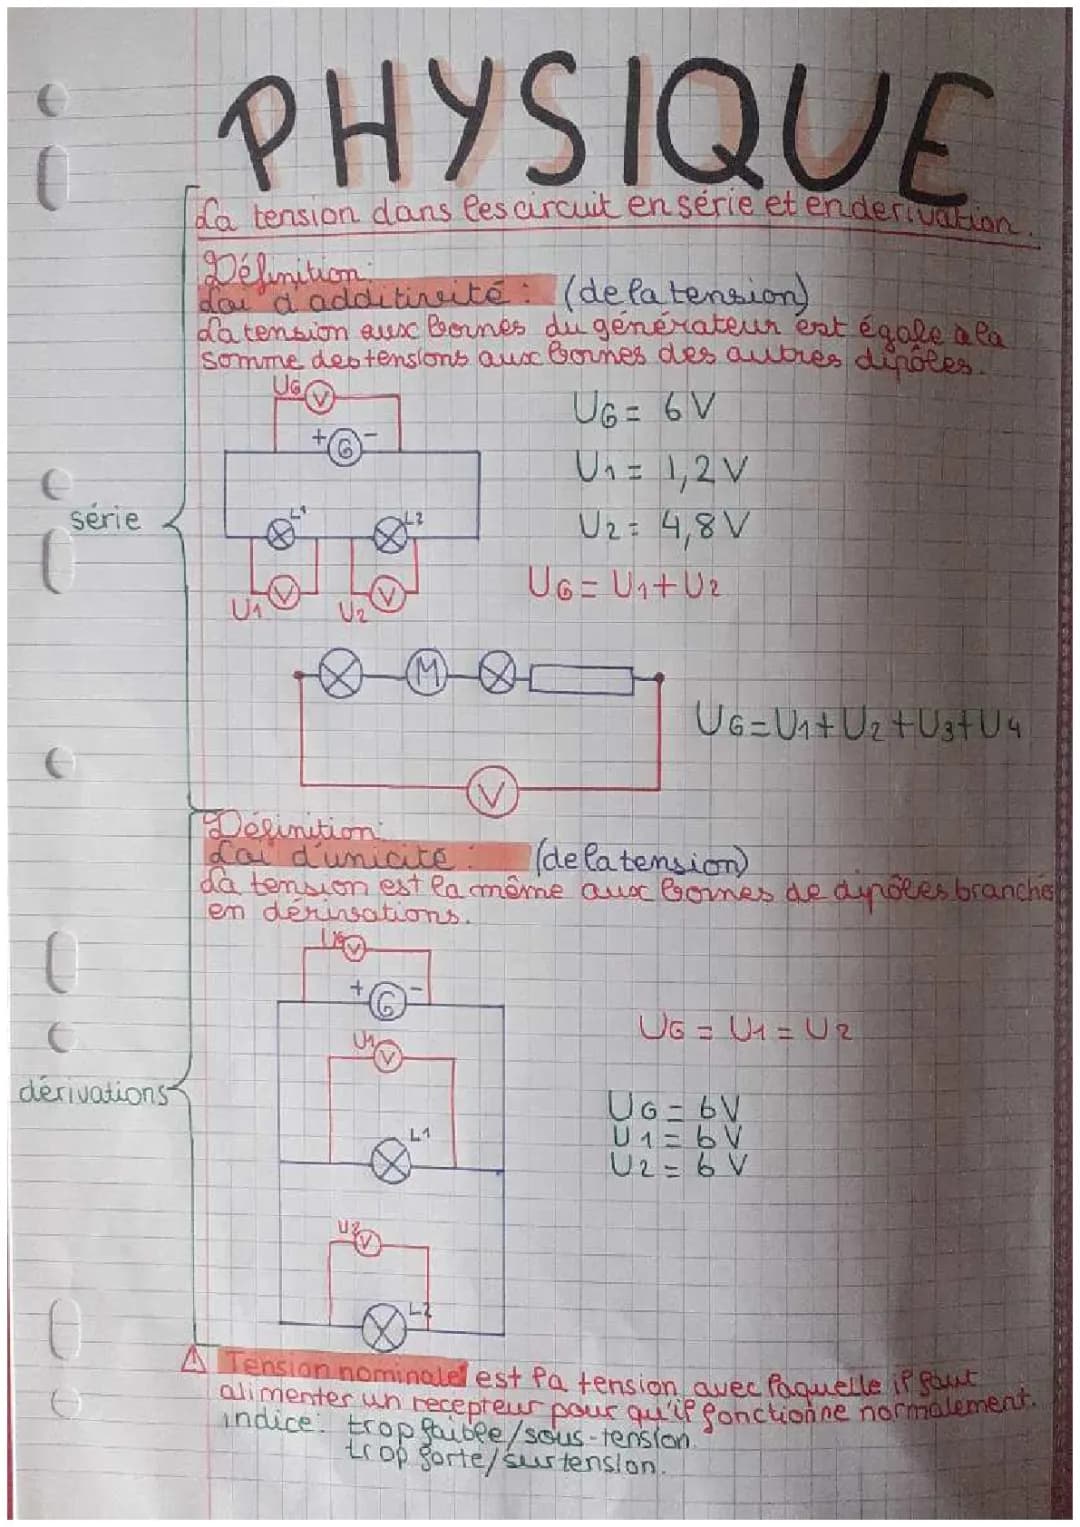 PHYSIQUE
La tension dans les circuit en série et en derivation.
Définition:
Loi d'additivité : (de la tension)
La tension aux bornes du générateur est égale a la
somme des tensions aux bornes des autres dipôles.
UG V
+ G -
UG = 6 V
U1 = 1,2 V
série
L1 L2
U2 = 4,8 V
V V
U1 U2
UG = U1 + U2
M
UG = U1 + U2 + U3 + U4
V
Définition:
Loi d'unicité : (de la tension)
La tension est la même aux bornes de dipôles branché
en dérivations.
UG V
+ G -
U1 V
UG = U1 = U2
dérivations
UG = 6V
U1 = 6 V
U2 = 6 V
L1
U2 V
L2
⚠ Tension nominale est la tension avec laquelle il faut
alimenter un recepteur pour qu'il fonctionne normalement.
indice: trop faible/sous-tension.
trop forte/surtension.